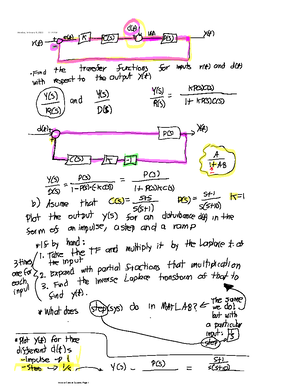 d(t)
R(s) K C(s) P(s) Y(s)
-Find the transfer functions for inputs r(t) and d(t)
with respect to the output Y(t)
Y(s)/R(s) and Y(s)/D(s) Y(s)/R(s) = KP(s)C(s) / 1 + KP(s)C(s)
d(t) P(s) Y(s)
C(s) K -1
Y(s)/D(s) = P(s) / 1-P(s)(-KC(s)) = P(s) / 1+P(s)KC(s) A / 1+AB
b) Assume that C(s) = s+5 / s(s+1) P(s) = s+1 / s(s+10) K=1
Plot the output Y(s) for an disturbance d(t) in the
form of an impulse, a step and a ramp
*IF by hand:
1. Take the TF and multiply it by the Laplace t of
the input
2. Expand with partial fractions that multiplication
3. Find the inverse Laplace transform of that to
find y(t).
3 times
one for
each
input
* What does step(sys) do in MATLAB?
The same
we do
but with
a particular
input:
step
*Plot Y(t) for three
different d(t)s
-impulse → 1
-Step → 1/s
Y(s) P(s) = s+1